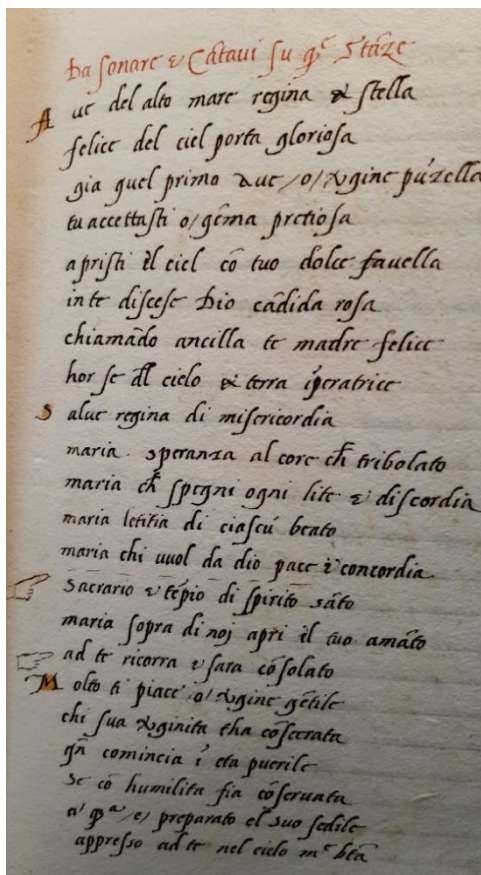 Da sonare & Cātavi su q̄ste Stāze
Ave del alto mare regina & stella
felice del ciel porta gloriosa
gia quel primo ave /o/ v̄gine púzella
tu accettasti o/ gēma pretiosa
apristi il ciel cō tuo dolce favella
in te discese Dio cādida rosa
chiamādo ancilla te madre felice
hor se dl̄ cielo & terra īperatrice
Salve regina di misericordia
maria. speranza al core ch̄ tribolato
maria ch̄ spegni ogni lite & discordia
maria letitia di ciascū beato
maria chi vuol da dio pace & concordia.
Sacrario & tēpio di spirito sāto
maria sopra di noj apri il tuo amāto
ad te ricorra & sara cōsolato
Molto ti piace /o/ v̄gine gētile
chi sua v̄ginita tha cōsecrata
qn̄ comincia ī eta puerile
se cō humilita sia cōservata
a' q̄sta /e/ preparato el suo sedile
appresso ad te nel cielo m̄e btā